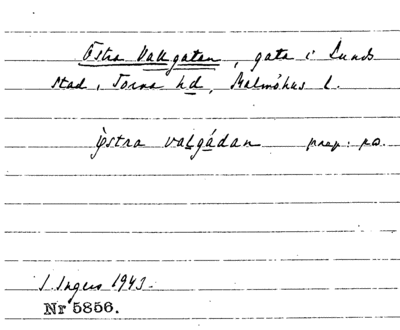 Östra Vallgatan, gata i Lunds
stad, Torna hd, Malmöhus l.
östra valgádan prep: på.
I. Ingers 1943.
Nr 5856.